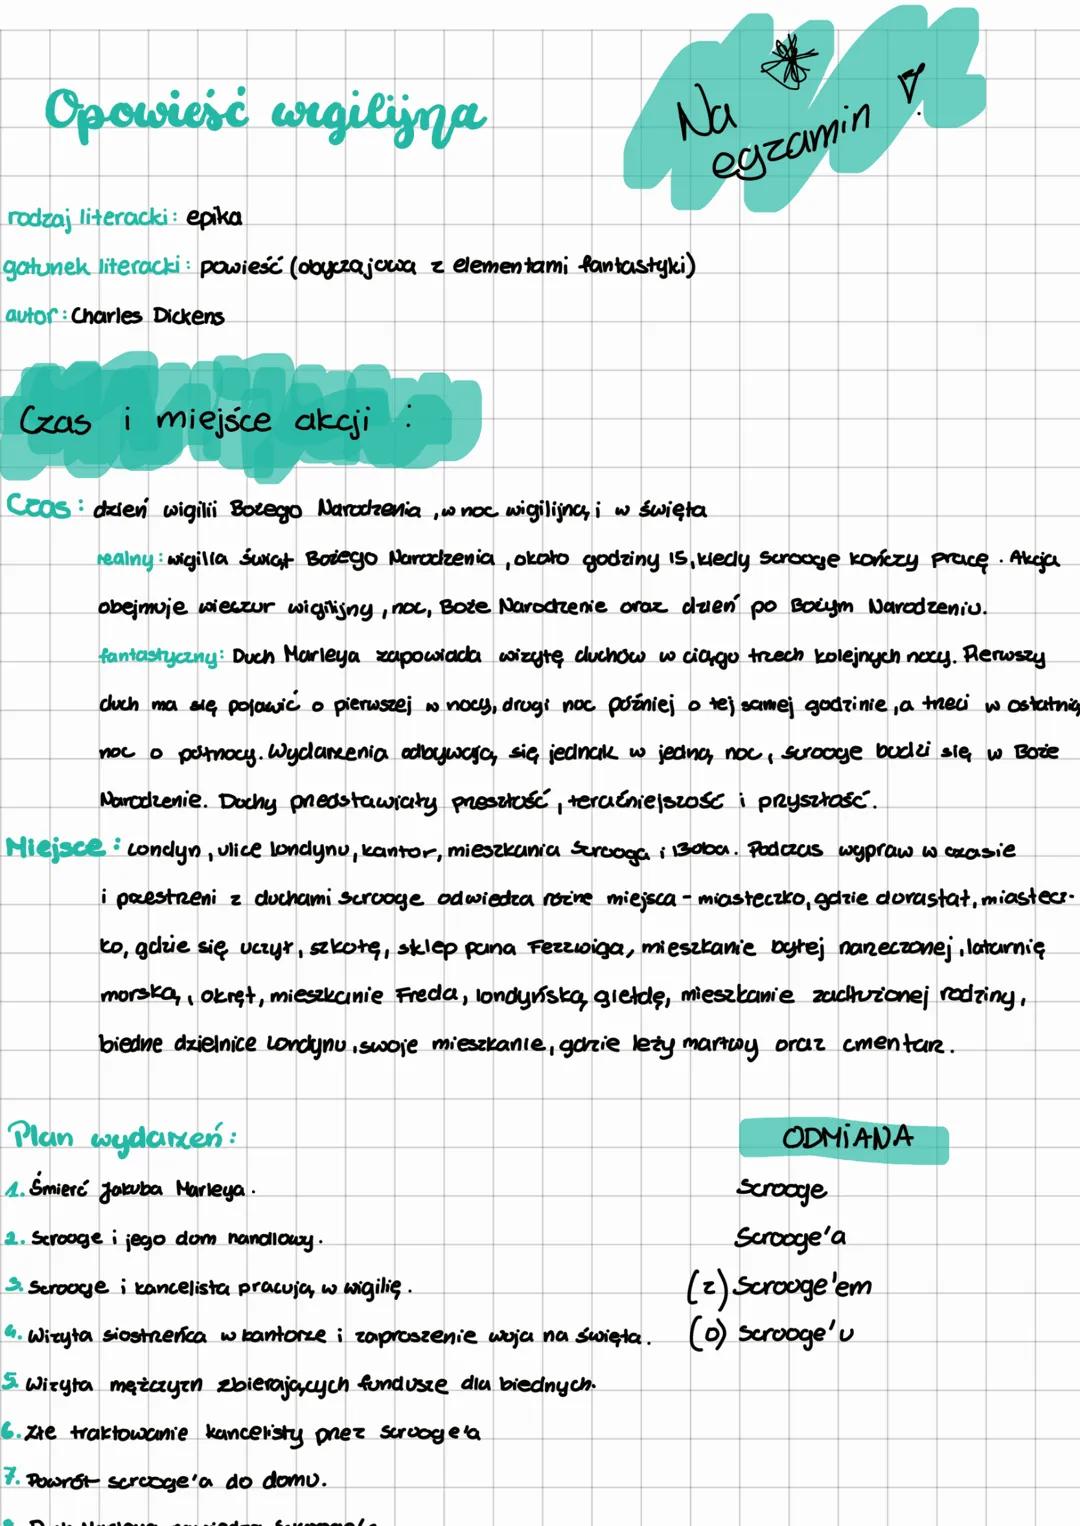 Opowieść wigilijna
Na
egzamin
rodzaj literacki: epika
gatunek literacki: powieść (obyczajowa z elementami fantastyki)
autor: Charles Dickens
Czas i miejsce akcji :
Czas: dzień wigilii Bożego Narodzenia, w noc wigilijną i w święta
realny: wigilia świąt Bożego Narodzenia, około godziny 15, kiedy Scrooge kończy pracę. Akcja
obejmuje wieczur wigilijny, noc, Boże Narodzenie oraz dzień po Bożym Narodzeniu.
fantastyczny: Duch Marleya zapowiada wizytę duchów w ciągo trzech kolejnych nocy. Pierwszy
duch ma się pojawić o pierwszej w nocy, drugi noc później o tej samej godzinie, a trzeci w ostatnią
noc o północy. Wydarzenia odbywają się jednak w jedną noc, Scrooge budzi się w Boże
Narodzenie. Duchy przedstawiały przeszłość, teraźniejszość i przyszłość.
Miejsce: Londyn, ulice londynu, kantor, mieszkania Scrooga i Boba. Podczas wypraw w czasie
i przestrzeni z duchami Scrooge odwiedza różne miejsca - miasteczko, gdzie dorastał, miastecz-
ko, gdzie się uczył, szkołę, sklep pana Fezziwiga, mieszkanie byłej narzeczonej, latarnię
morską, okręt, mieszkanie Freda, londyńską giełdę, mieszkanie zadłużonej rodziny,
biedne dzielnice Londynu, swoje mieszkanie, gdzie leży martwy oraz cmentarz.
Plan wydarzeń:
ODMIANA
1. Śmierć Jakuba Marleya.
Scrooge
2. Scrooge i jego dom handlowy.
Scrooge'a
3. Scrooge i kancelista pracują w wigilię.
(z) Scrooge'em
4. Wizyta siostrzeńca w kantorze i zaproszenie wuja na święta.
(o) Scrooge'u
5. Wizyta mężczyzn zbierających fundusze dla biednych.
6. Złe traktowanie kancelisty przez Scrooge'a
7. Powrót Scrooge'a do domu.